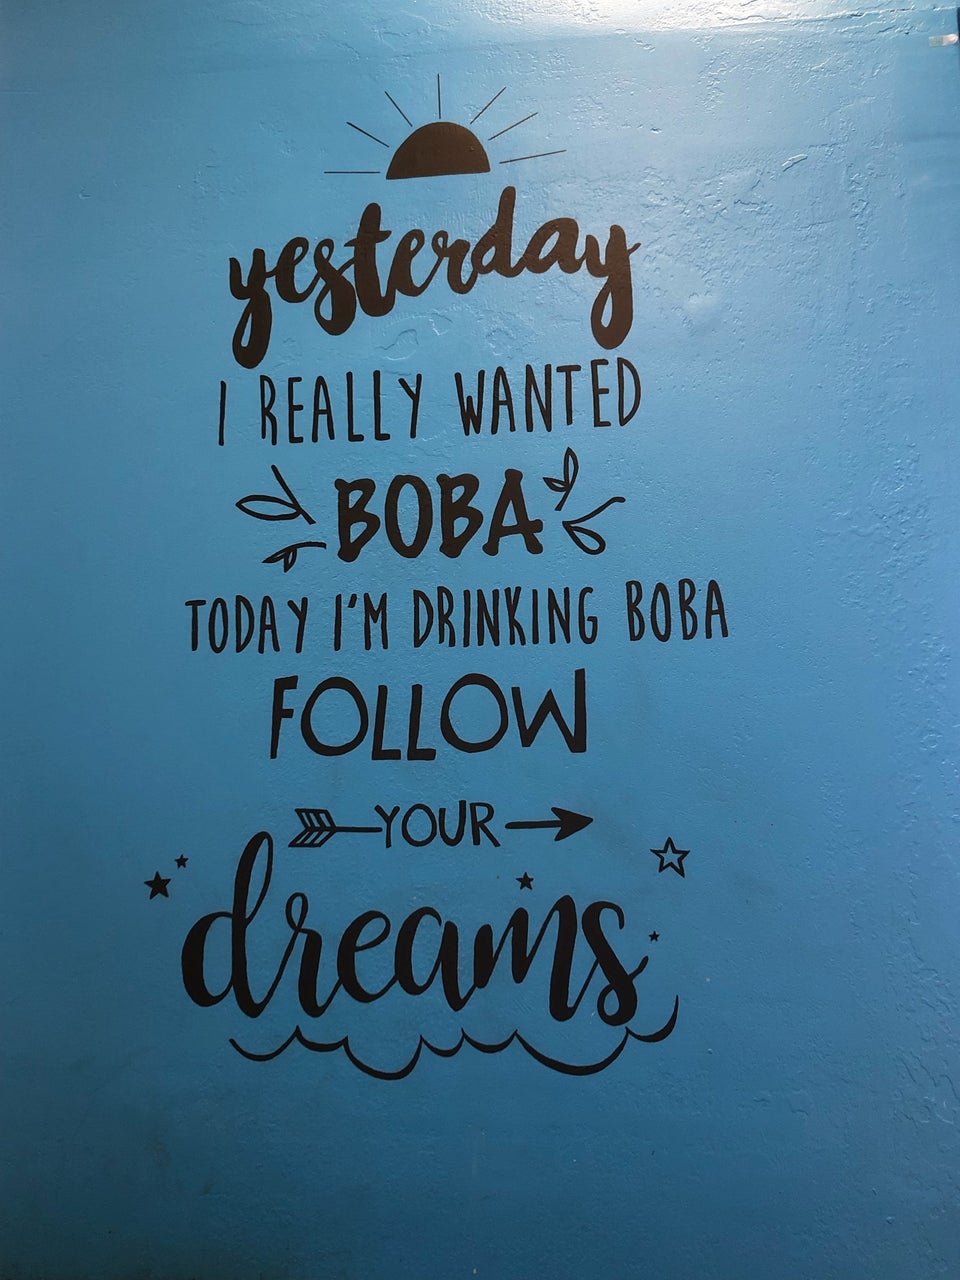 yesterday
I REALLY WANTED
BOBA
TODAY I'M DRINKING BOBA
FOLLOW
YOUR
dreams